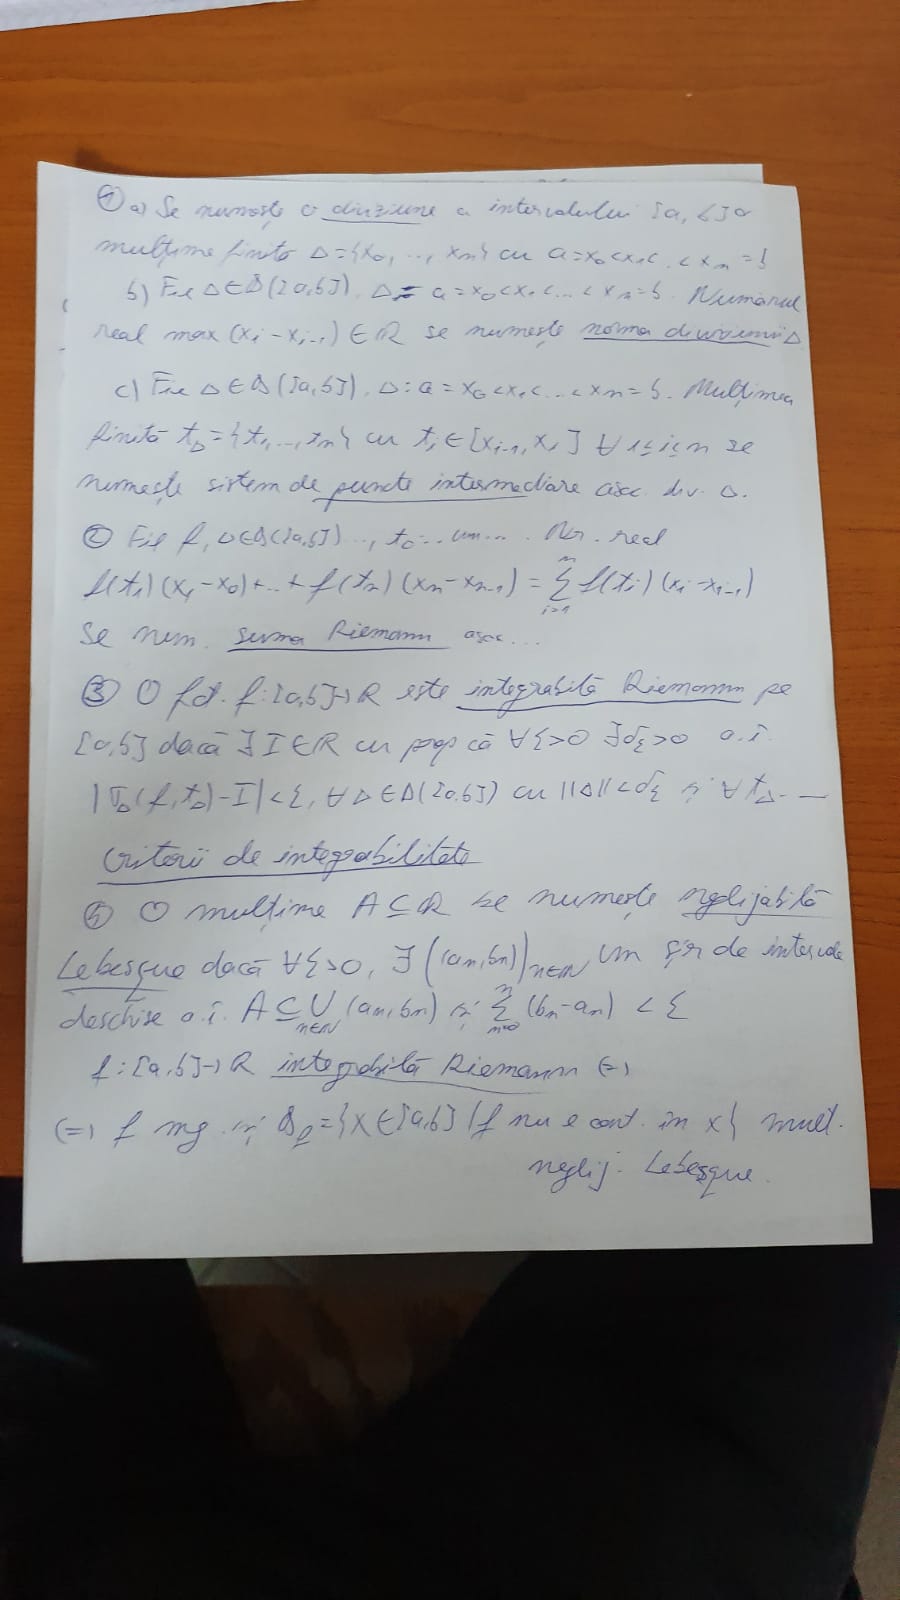 ① a) Se numește o diviziune a intervalului [a, b] o
mulțime finită Δ={x0, ..., xn} cu a=x0<x1< . <xn=b
b) Fie Δ∈𝒟([a,b]), Δ= a=x0<x1<...<xn=b. Numărul
real max (xi-xi-1)∈R se numește norma diviziunii Δ
c) Fie Δ∈𝒟([a,b]), Δ: a=x0<x1<...<xn=b. Mulțimea
finită tΔ={t1,...,tn} cu ti∈[xi-1,xi] ∀ 1≤i≤n se
numește sistem de puncte intermediare asc. div. Δ.
② Fie f, Δ∈𝒟([a,b])..., tΔ... un... . Nr. real
f(t1)(x1-x0)+...+f(tn)(xn-xn-1) = Σ_{i=1}^{n} f(ti)(xi-xi-1)
se num. suma Riemann asoc...
③ O fct. f:[a,b]→R este integrabilă Riemann pe
[a,b] dacă ∃ I∈R cu prop că ∀ε>0 ∃δε>0 a.î.
|σΔ(f,tΔ)-I|<ε, ∀Δ∈Δ([a,b]) cu ||Δ||<δε și ∀ tΔ...—
Criterii de integrabilitate
O mulțime A⊆R se numește neglijabilă
Lebesque dacă ∀ε>0, ∃((an,bn))n∈N un șir de intervale
deschise a.î. A⊆∪_{n∈N}(an,bn) și Σ_{m=0}^{n}(bn-an) < ε
f:[a,b]→R integrabilă Riemann (=)
(=) f mg. și 𝒟f={x∈[a,b] | f nu e cont. în x} mult.
neglij. Lebesque.